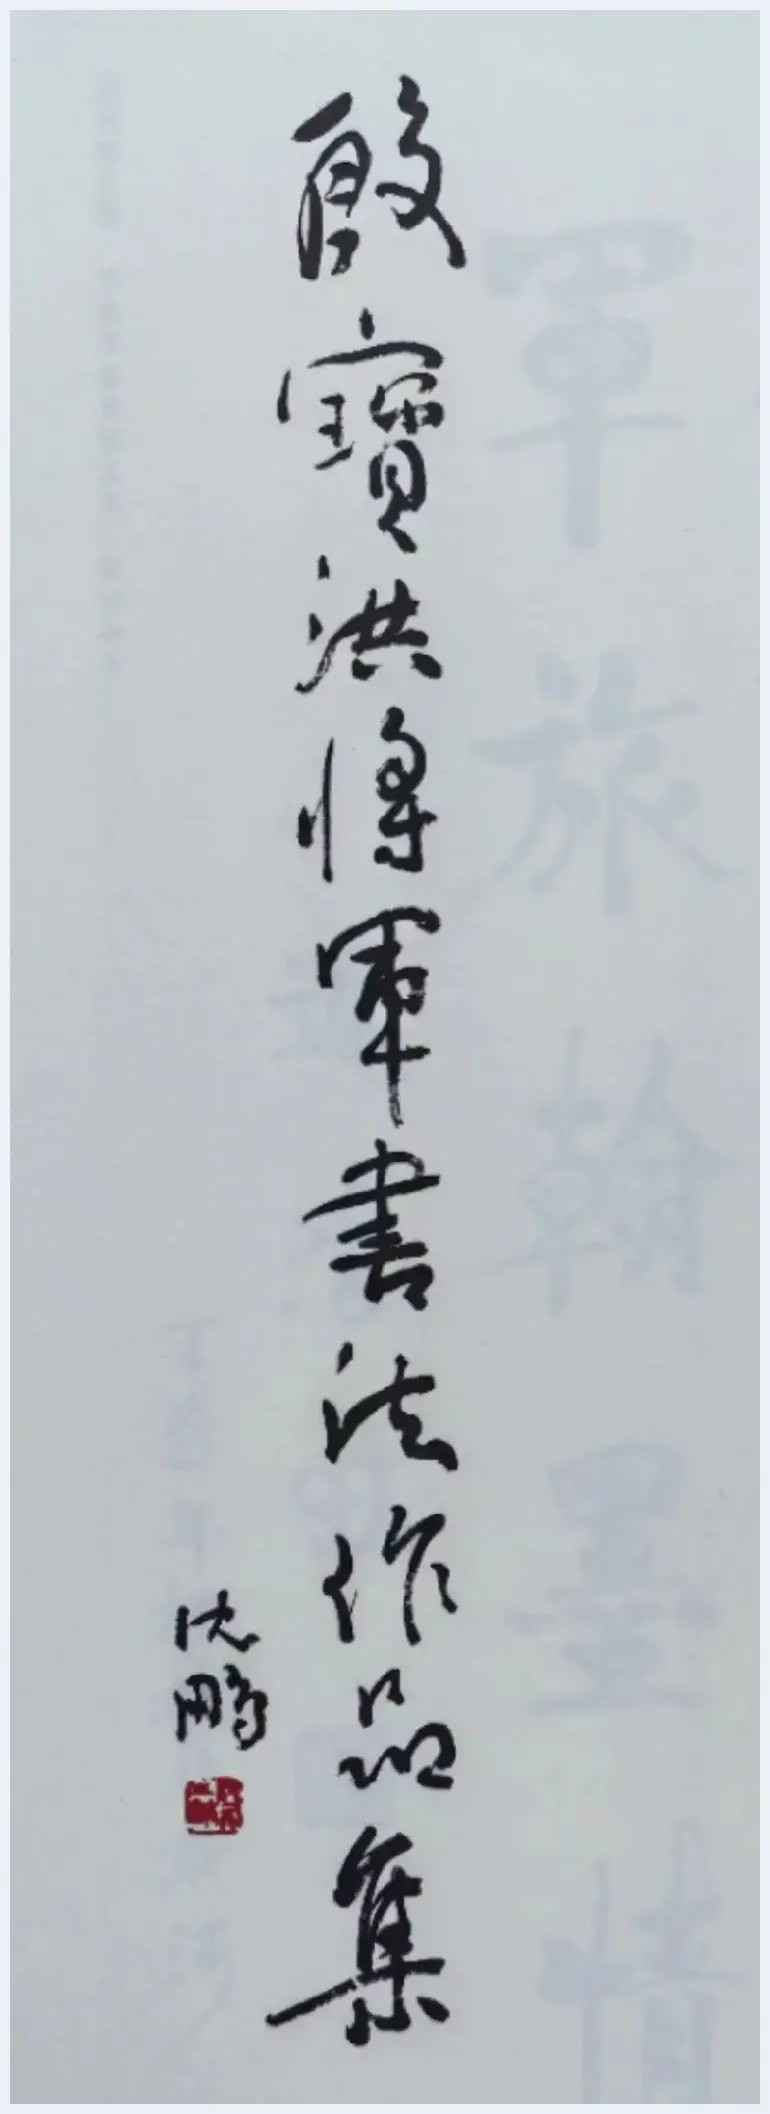 殷寶洪將軍書法作品集
沈鵬
軍旅翰墨情